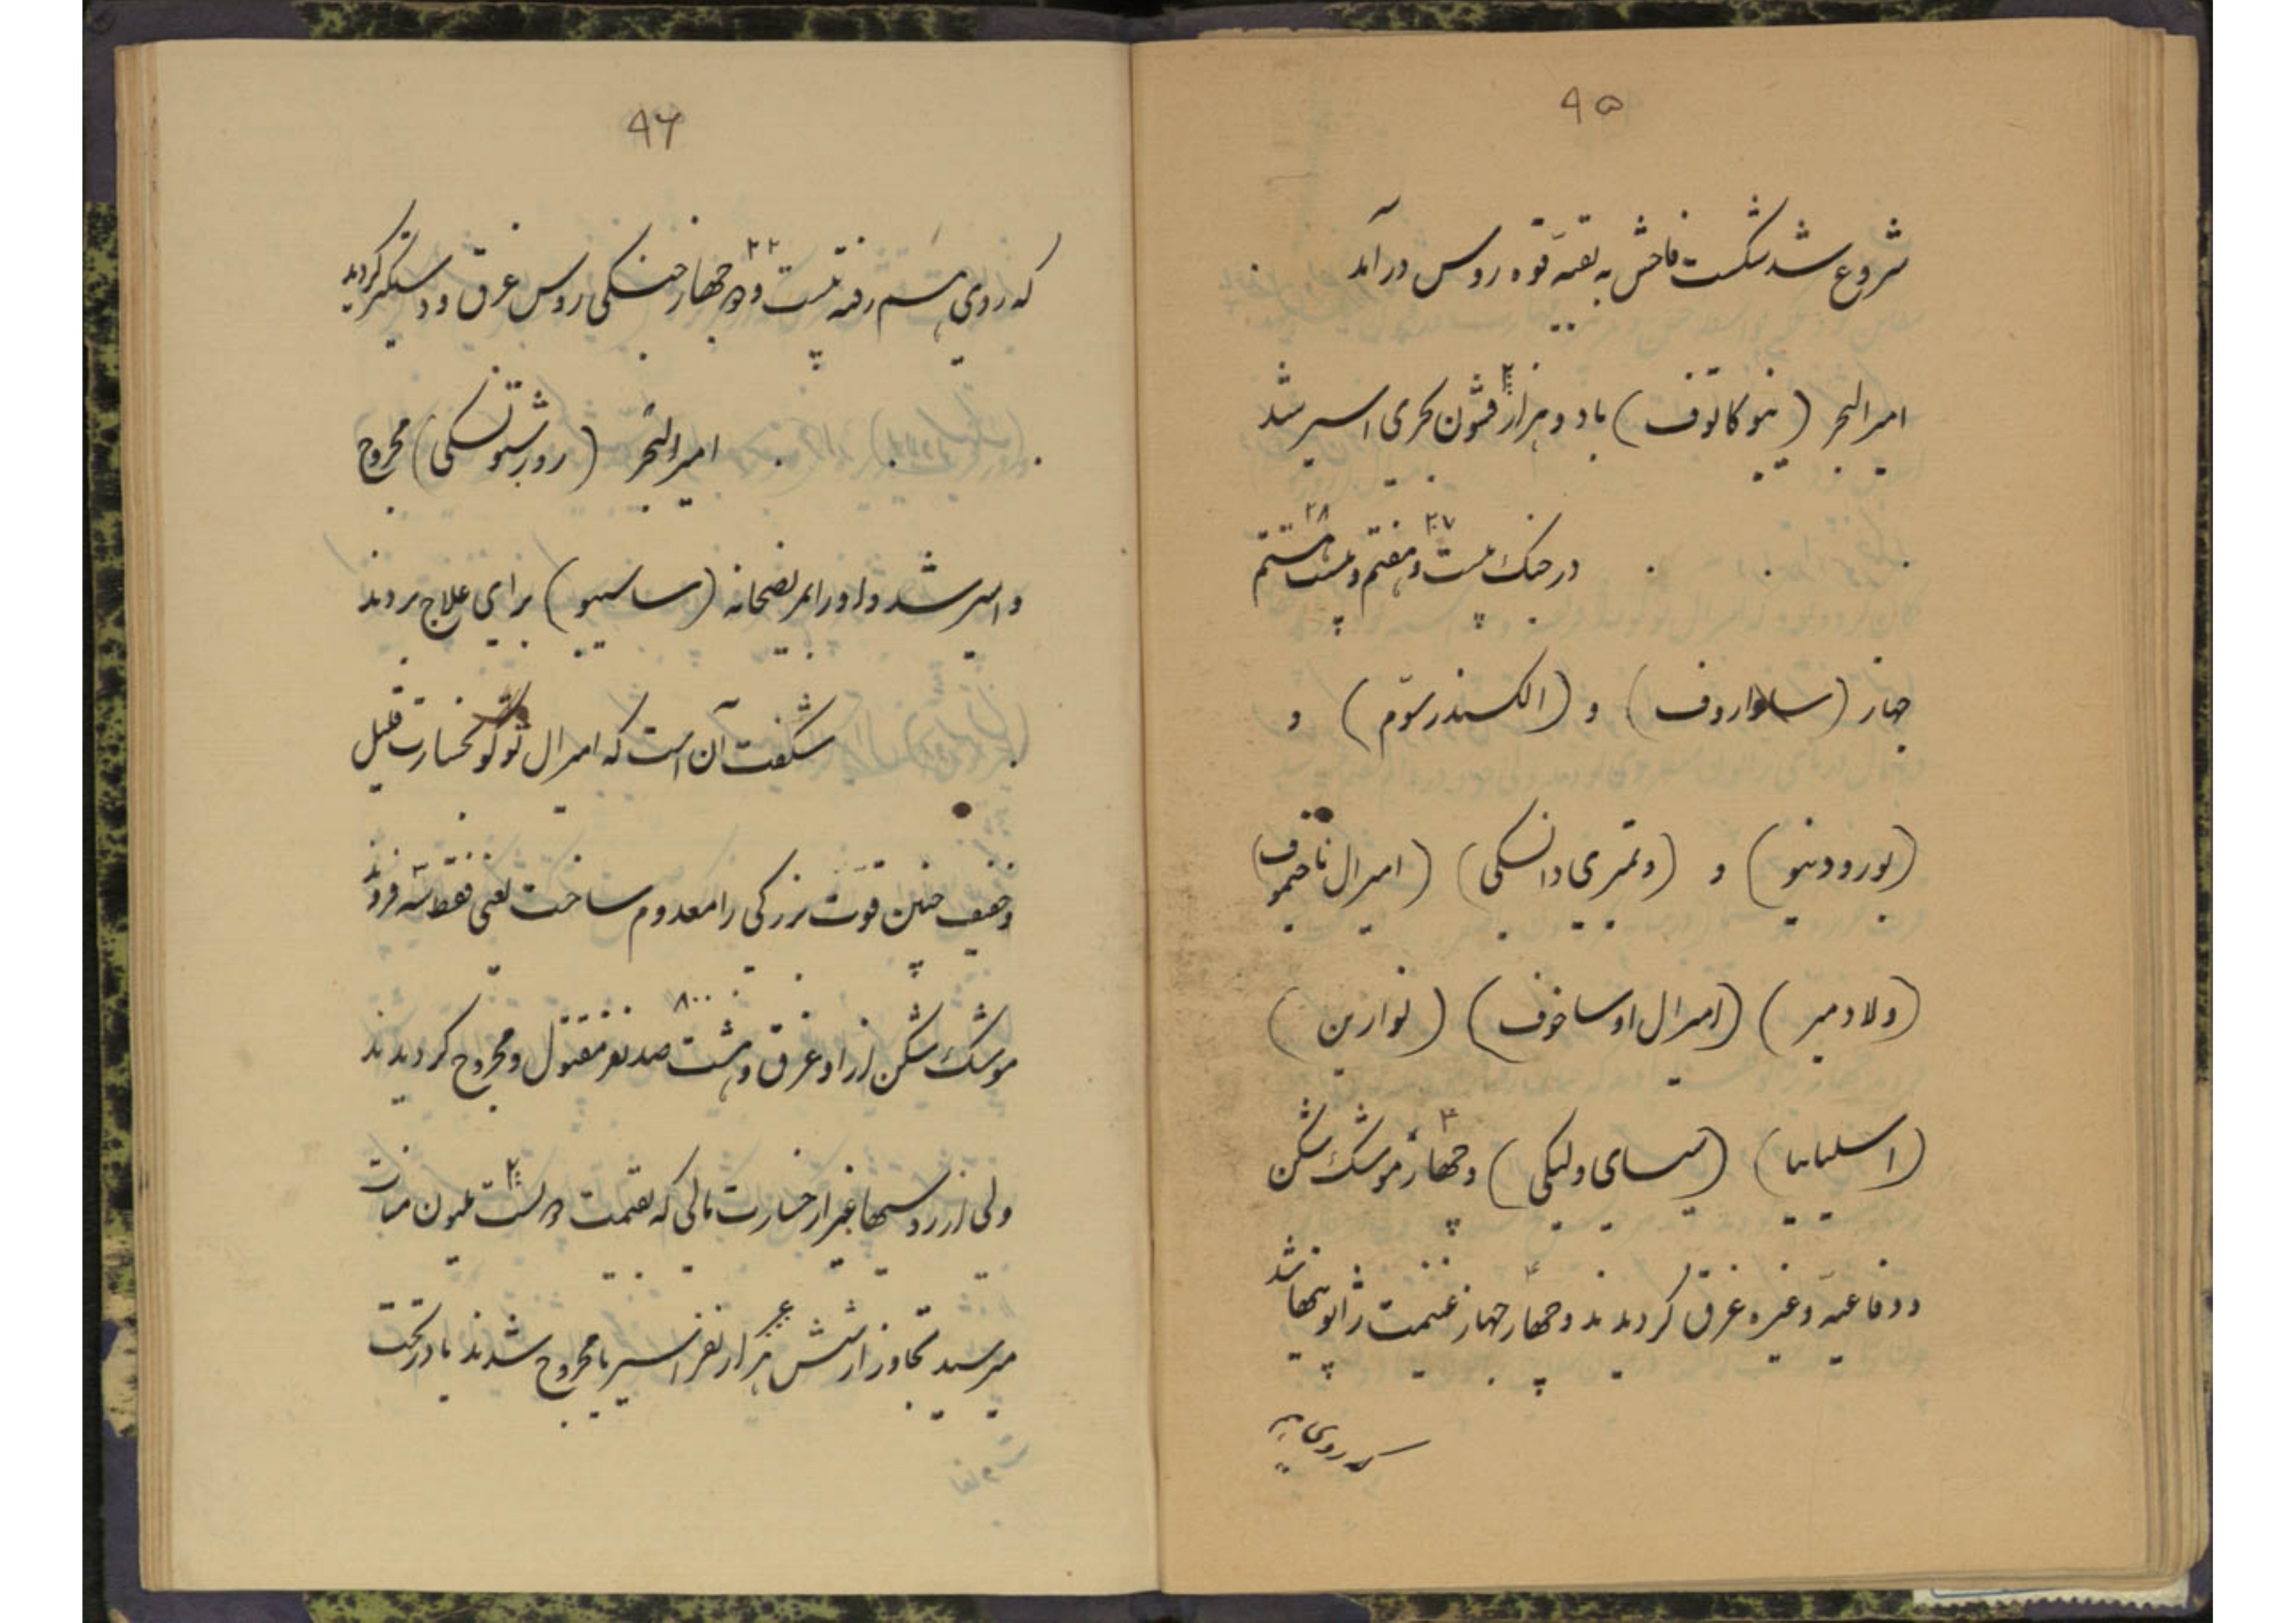 ۹۵
شروع شد شکست فاحش به بقیه قوه روس درآمد
امیرالبحر (نیبوکاتوف) با دو هزار ۲۰۰۰ قشون بحری اسیر شد
در جنک بیست و هفتم ۲۷ و بیست هشتم ۲۸
جهاز (ساواروف) و (الکسندر سوّم) و
(بورودینو) و (دمتیری دانسکی) (امیرال ناخیموف)
(ولادمیر) (امیرال اوساخوف) (نوارین)
(اسلیانیا) (سیسای ولیکی) و چهار ۴ موشک شکن
و دفاعیه و غیره غرق کردیدند و چهار ۴ جهاز غنیمت ژاپونیها شد
که روی هم
۹۶
که روی هم رفته بیست و دو ۲۲ جهاز جنکی روس غرق و دستکیر کردید
امیرالبحر (روژستونسکی) مجروح
و اسیر شد و او را بمریضخانه (ساسیبو) برای علاج بردند
شکفت آن است که امیرال توکو بخسارت قلیل
و خفیف چنین قوّت بزرکی را معدوم ساخت یعنی فقط سه فروند
موشک شکن از او غرق و هشت صد ۸۰۰ نفر مقتول و مجروح کردیدند
ولی از روسیها غیر از خسارت مالی که بقیمت دویست ۲۰۰ ملیون منات
میرسید تجاوز از شش ۶۰۰۰ هزار نفر اسیر یا مجروح شدند یا در تحت